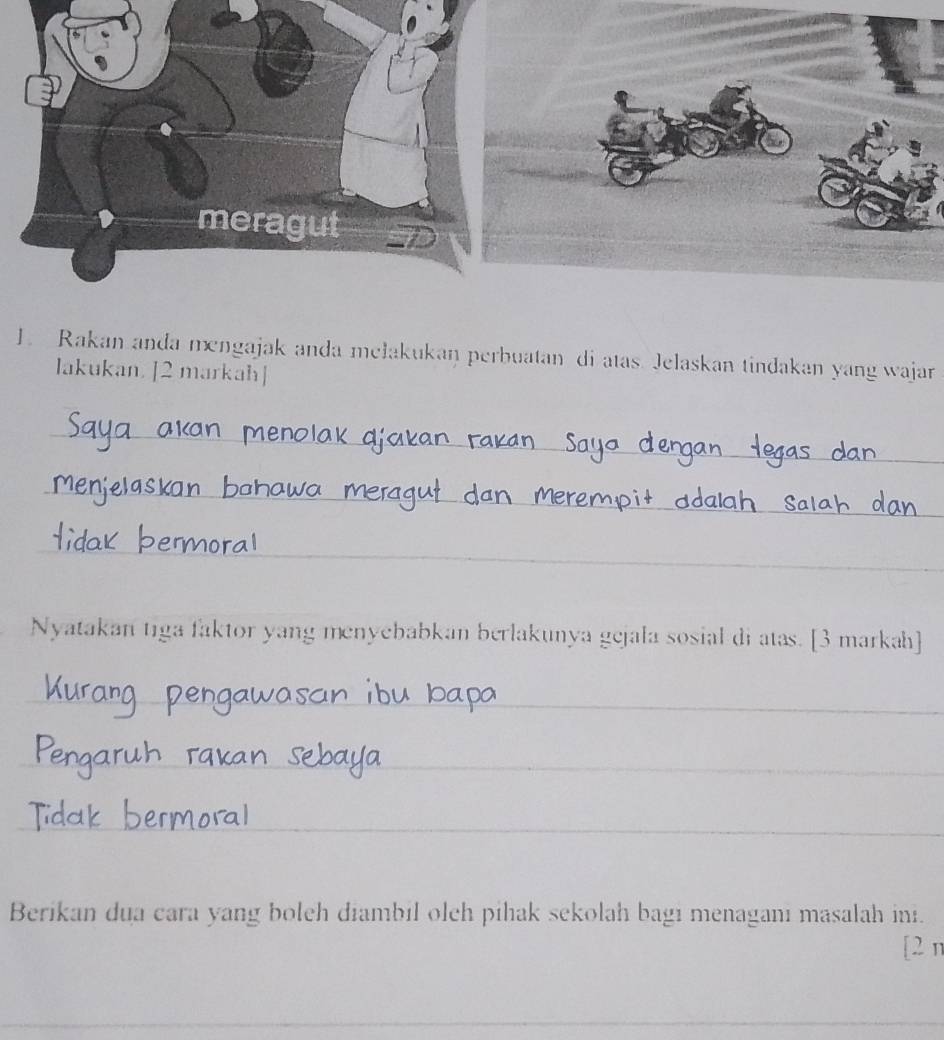 meragut
1. Rakan anda mengajak anda melakukan perbuatan di atas. Jelaskan tindakan yang wajar
lakukan. [2 markah]
Saya akan menolak ajakan rakan saya dengan tegas dan
menjelaskan bahawa meragut dan merempit adalah salah dan
tidak bermoral
Nyatakan tiga faktor yang menyebabkan berlakunya gejala sosial di atas. [3 markah]
Kurang pengawasan ibu bapa
Pengaruh rakan sebaya
Tidak bermoral
Berikan dua cara yang boleh diambil oleh pihak sekolah bagi menagani masalah ini.
[2